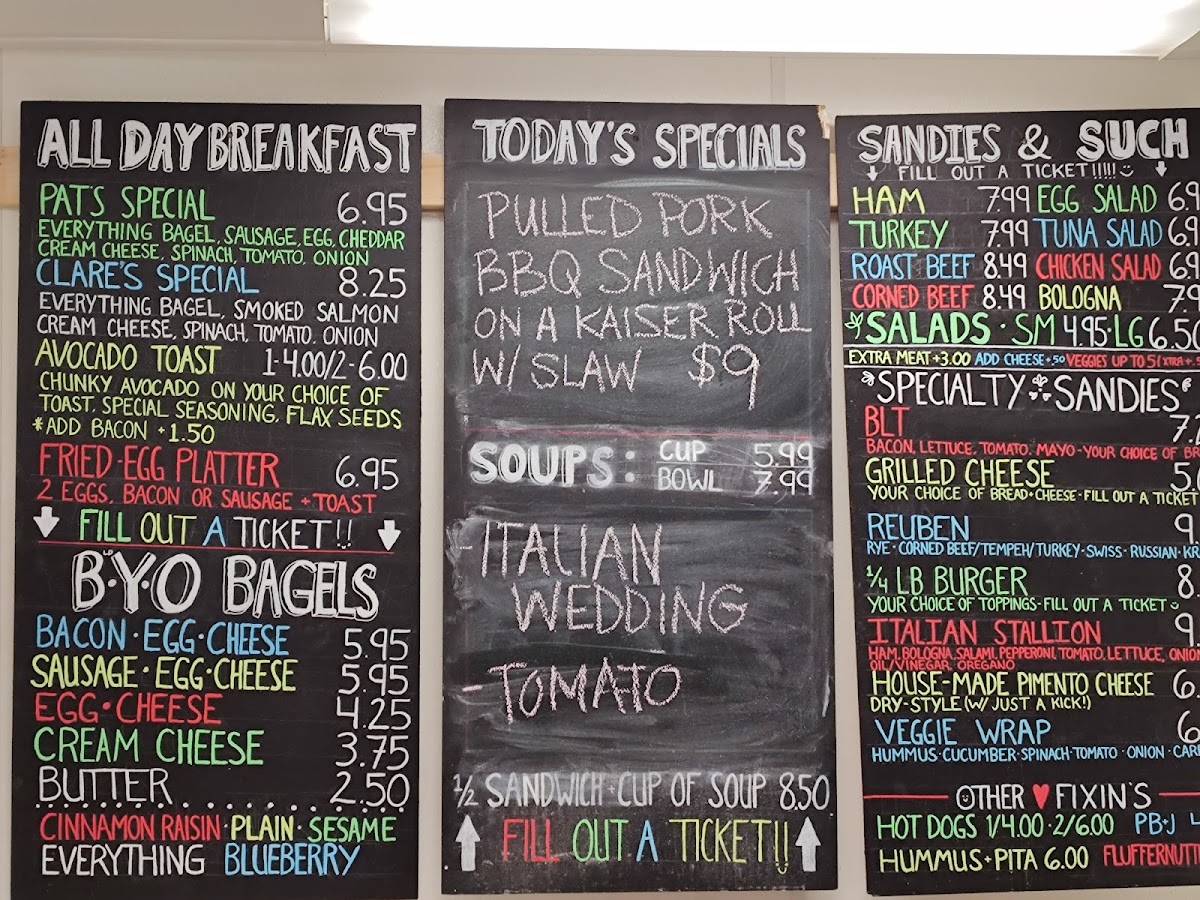 ALL DAY BREAKFAST
PAT'S SPECIAL 6.95
EVERYTHING BAGEL, SAUSAGE, EGG, CHEDDAR
CREAM CHEESE, SPINACH, TOMATO, ONION
CLARE'S SPECIAL 8.25
EVERYTHING BAGEL, SMOKED SALMON
CREAM CHEESE, SPINACH, TOMATO, ONION
AVOCADO TOAST 1-4.00/2-6.00
CHUNKY AVOCADO ON YOUR CHOICE OF
TOAST, SPECIAL SEASONING, FLAX SEEDS
*ADD BACON +1.50
FRIED-EGG PLATTER 6.95
2 EGGS, BACON OR SAUSAGE + TOAST
FILL OUT A TICKET!!
B·Y·O BAGELS
BACON·EGG·CHEESE 5.95
SAUSAGE·EGG·CHEESE 5.95
EGG·CHEESE 4.25
CREAM CHEESE 3.75
BUTTER 2.50
CINNAMON RAISIN·PLAIN·SESAME
EVERYTHING BLUEBERRY
TODAY'S SPECIALS
PULLED PORK
BBQ SANDWICH
ON A KAISER ROLL
W/ SLAW $9
SOUPS: CUP 5.99
BOWL 7.99
-ITALIAN
WEDDING
-TOMATO
1/2 SANDWICH+CUP OF SOUP 8.50
FILL OUT A TICKET!!
SANDIES & SUCH
FILL OUT A TICKET!!!!!
HAM 7.99 EGG SALAD 6.9
TURKEY 7.99 TUNA SALAD 6.9
ROAST BEEF 8.49 CHICKEN SALAD 6.9
CORNED BEEF 8.49 BOLOGNA 7.9
SALADS·SM 4.95·LG 6.50
EXTRA MEAT+3.00 ADD CHEESE+.50 VEGGIES UP TO 5(XTRA+.5
SPECIALTY SANDIES
BLT 7.
BACON, LETTUCE, TOMATO, MAYO-YOUR CHOICE OF BR
GRILLED CHEESE 5.
YOUR CHOICE OF BREAD+CHEESE-FILL OUT A TICKET
REUBEN 9.
RYE·CORNED BEEF/TEMPEH/TURKEY·SWISS·RUSSIAN·KR
1/4 LB BURGER 8.
YOUR CHOICE OF TOPPINGS-FILL OUT A TICKET
ITALIAN STALLION 9.
HAM, BOLOGNA, SALAMI, PEPPERONI, TOMATO, LETTUCE, ONION
OIL/VINEGAR, OREGANO
HOUSE-MADE PIMENTO CHEESE 6.
DRY-STYLE (W/ JUST A KICK!)
VEGGIE WRAP 6.
HUMMUS·CUCUMBER·SPINACH·TOMATO·ONION·CAR
OTHER FIXIN'S
HOT DOGS 1/4.00·2/6.00 PB+J 4
HUMMUS+PITA 6.00 FLUFFERNUTT